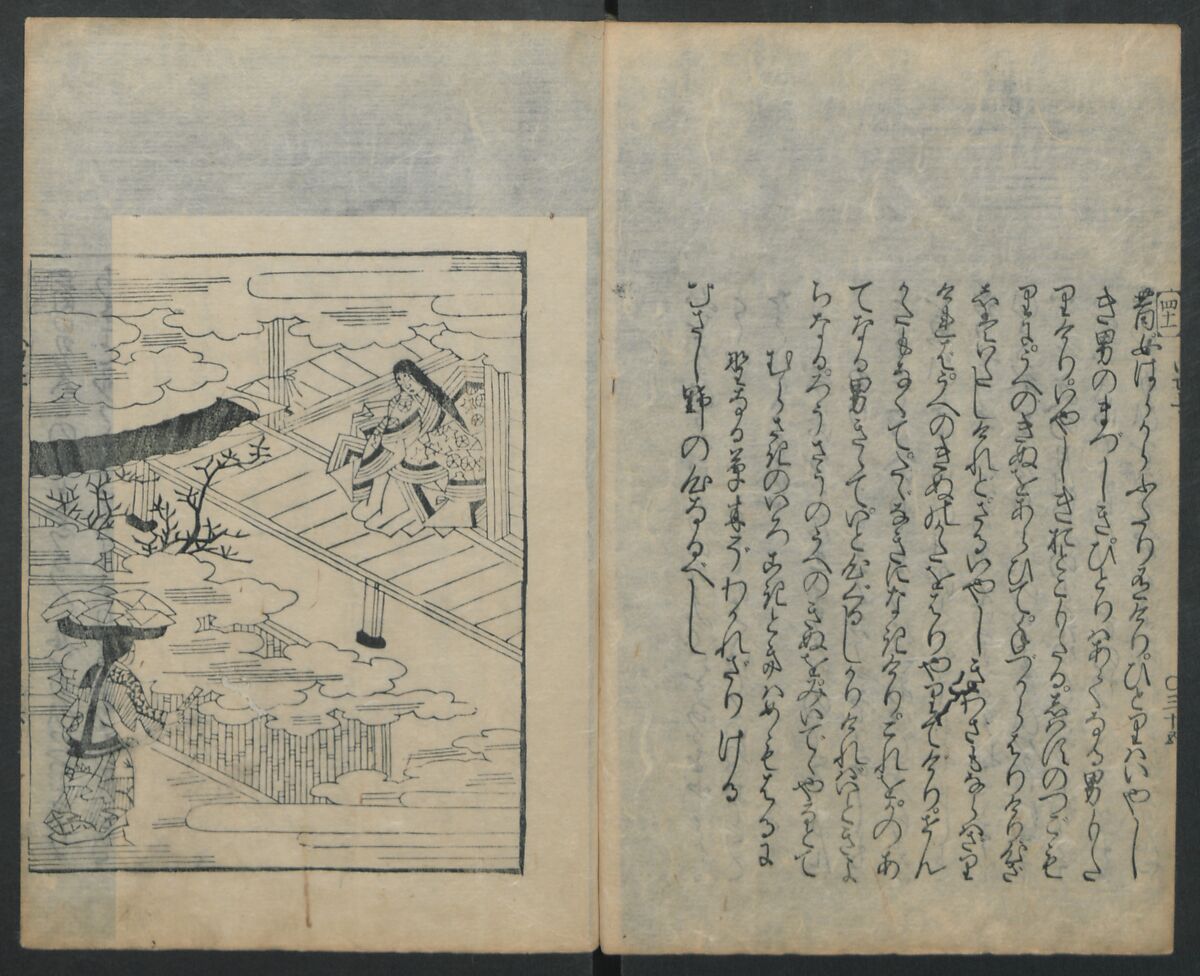 四十一
昔女はらからふたり有けり。ひとりはいやし
き男のまづしき。ひとりはあてなる男もた
りけり。いやしきおとこもたる。しはすのつごも
りに。うへのきぬをあらひて。手づからはりけり。心ざ
しはいたしけれどさるいやしきわざもならはざり
ければ。うへのきぬのかたをはりやりてけり。せん
かたもなくて。たゞなきになきけり。これをかのあ
てなる男きゝて。いと心ぐるしかりければ。いときよ
らなるろうさうのうへのきぬをみいでゝやるとて
むらさきのいろこき時はめもはるに
野なる草木ぞわかれざりける
むさし野の心なるべし